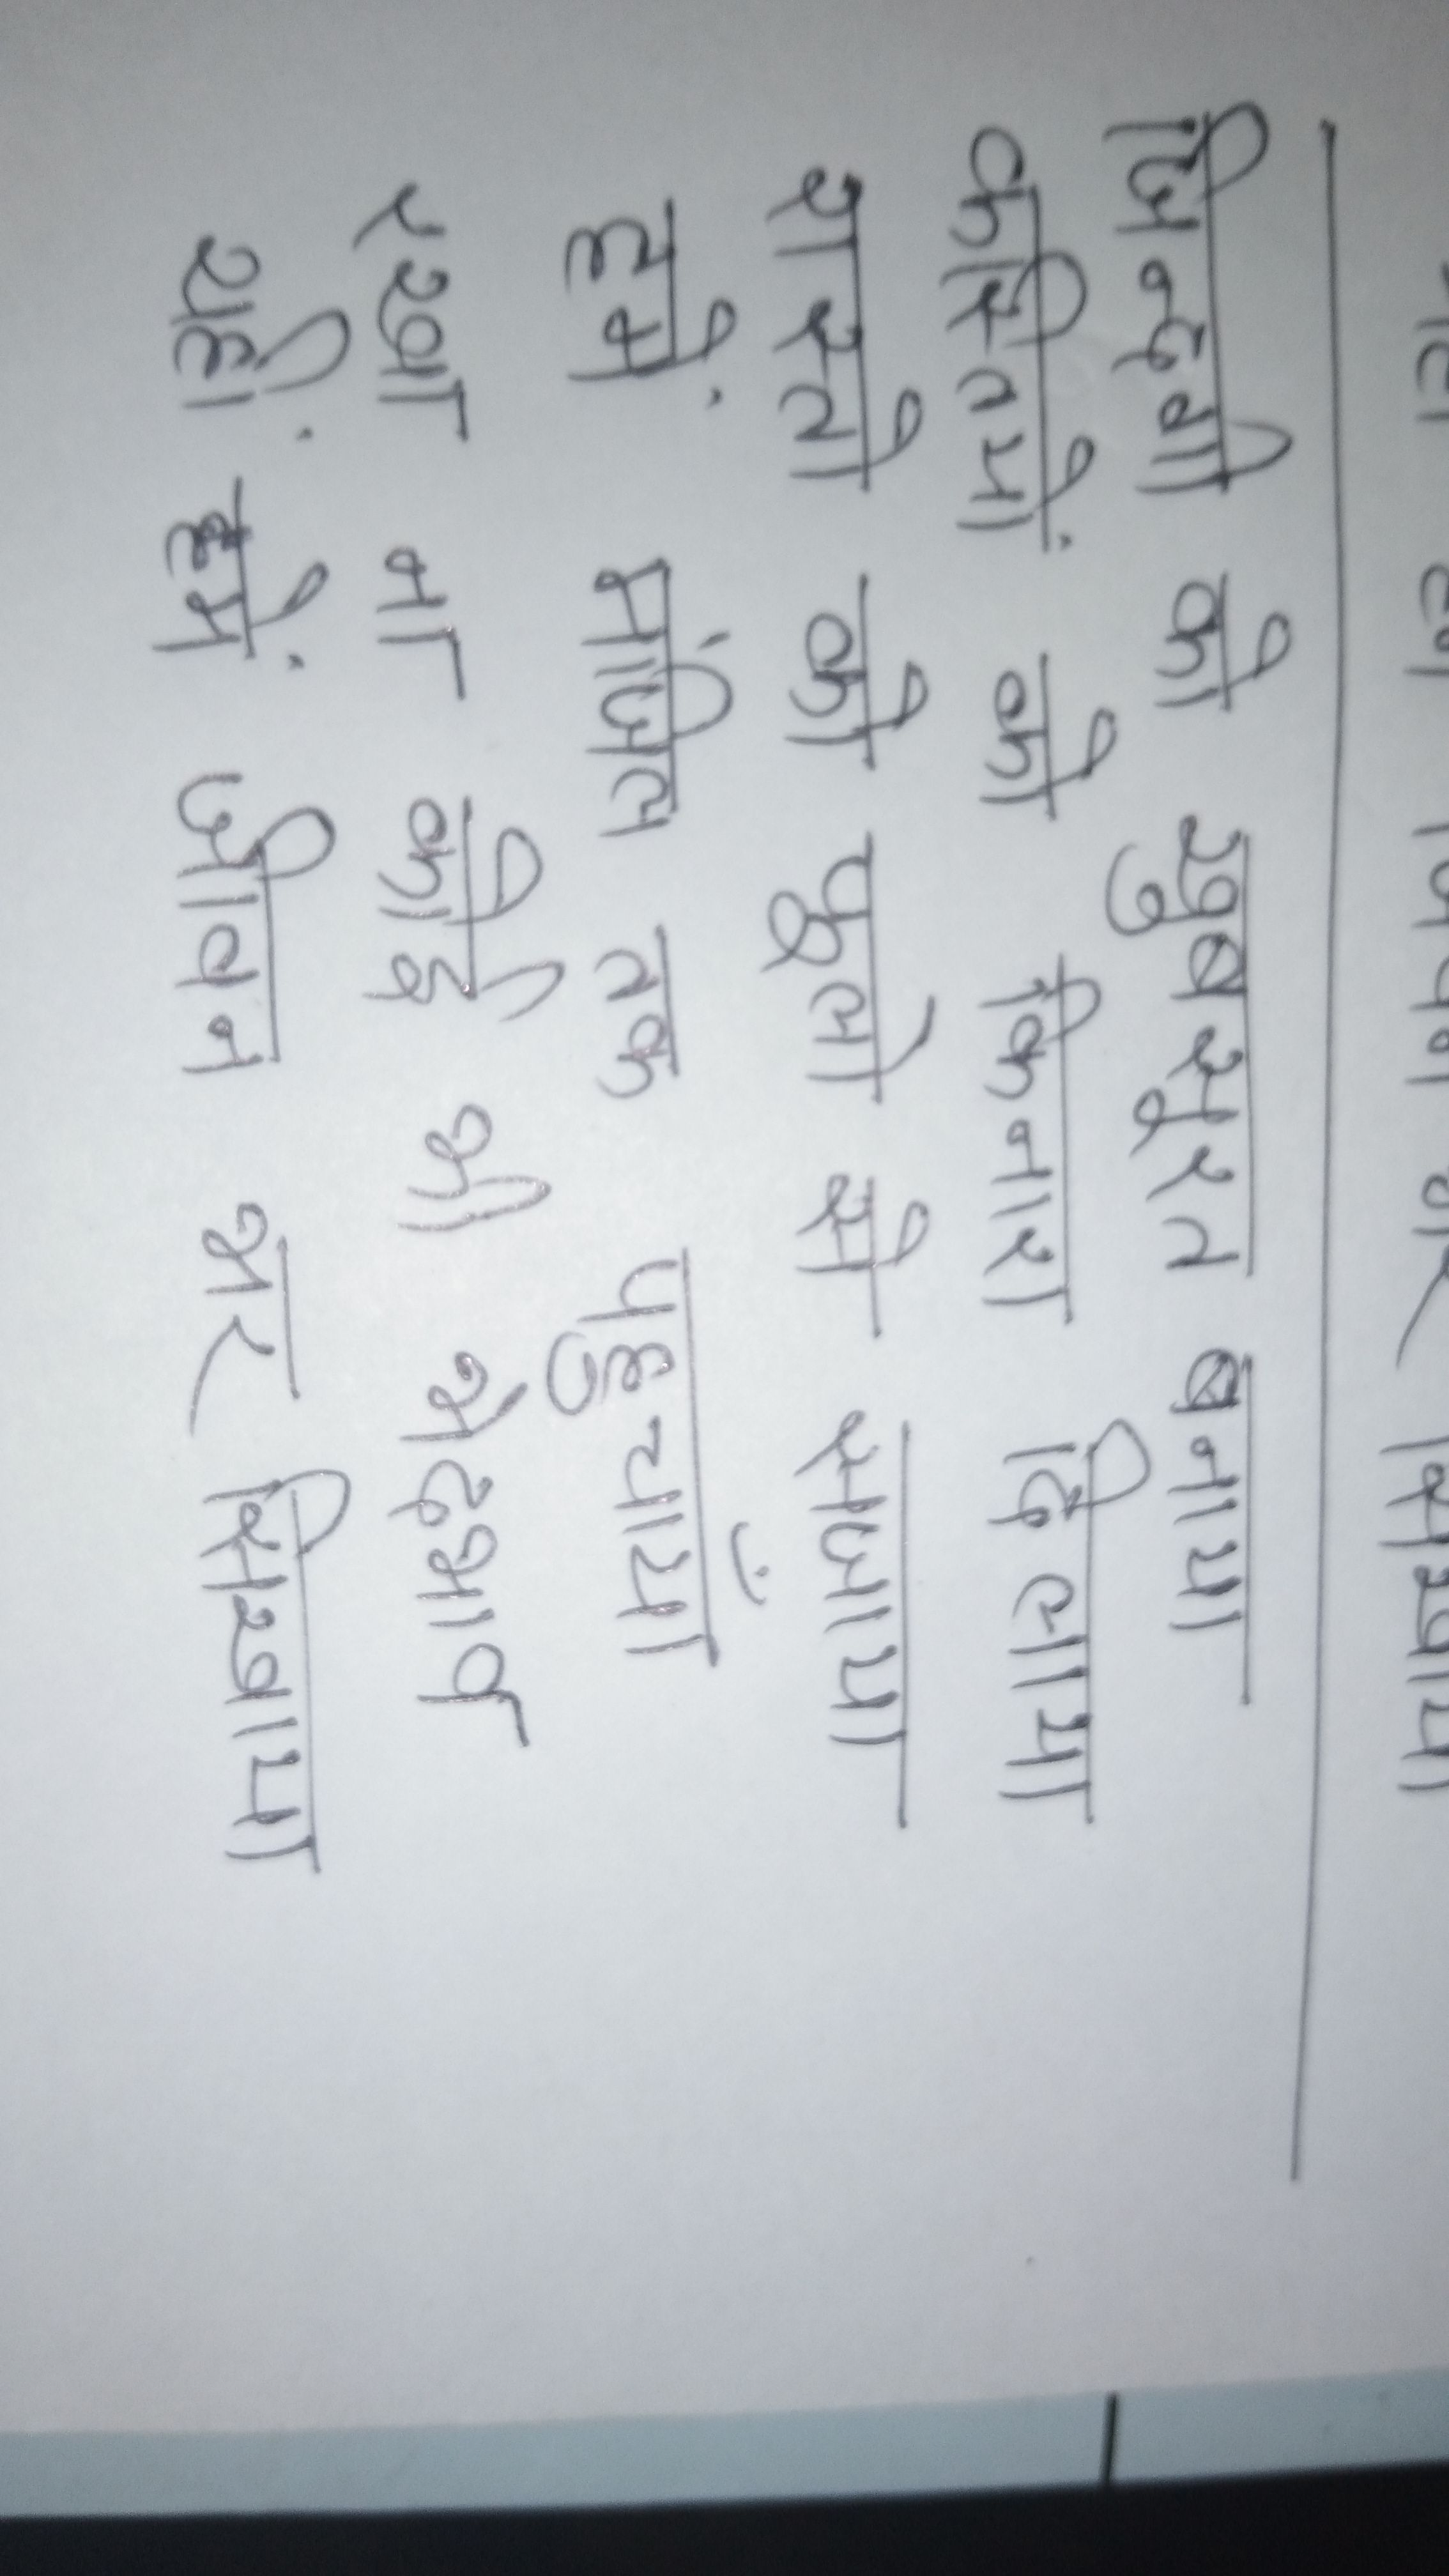 जिन्दगी को खुबसूरत बनाया
कस्तिओं को किनारा दिलाया
रास्तो को फूलो से सजाया
हमें मंजिल तक पहुचाँया
रखा ना कोई भी भेदभाव
यही हमें जीवन भर सिखाया